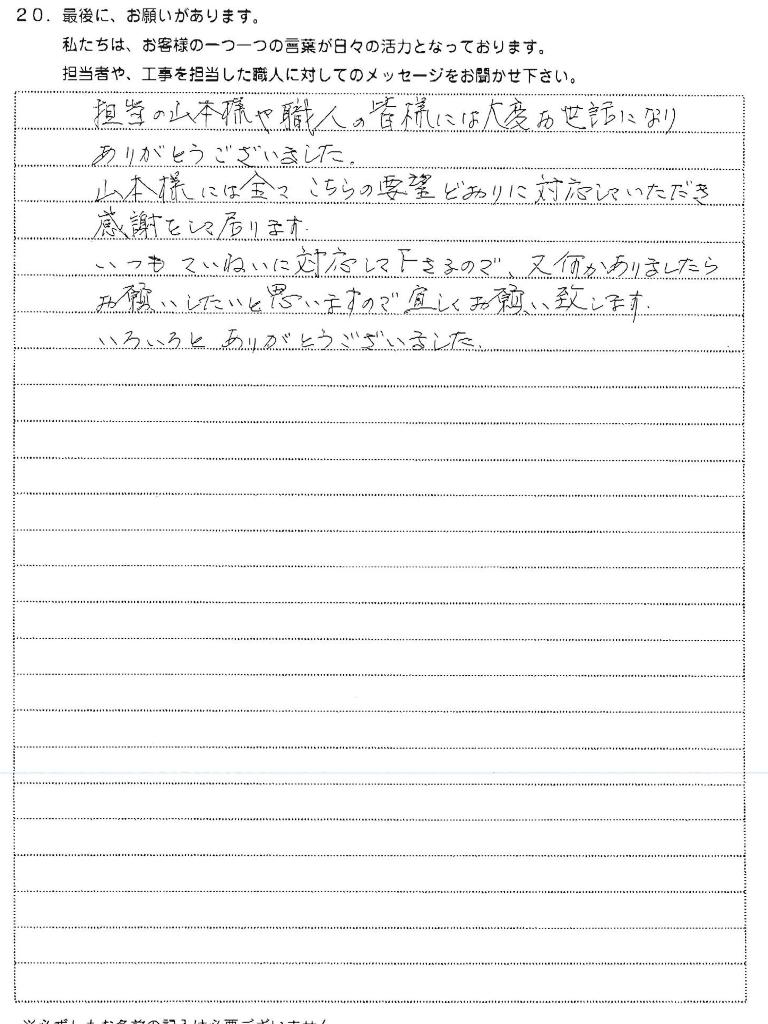 20. 最後に、お願いがあります。
私たちは、お客様の一つ一つの言葉が日々の活力となっております。
担当者や、工事を担当した職人に対してのメッセージをお聞かせ下さい。
担当の山本様や職人の皆様には大変お世話になり
ありがとうございました。
山本様には全てこちらの要望どおりに対応していただき
感謝をして居ります。
いつもていねいに対応して下さるので、又何かありましたら
お願いしたいと思いますので宜しくお願い致します。
いろいろとありがとうございました。
※必ずしもお名前の記入は必要ございません